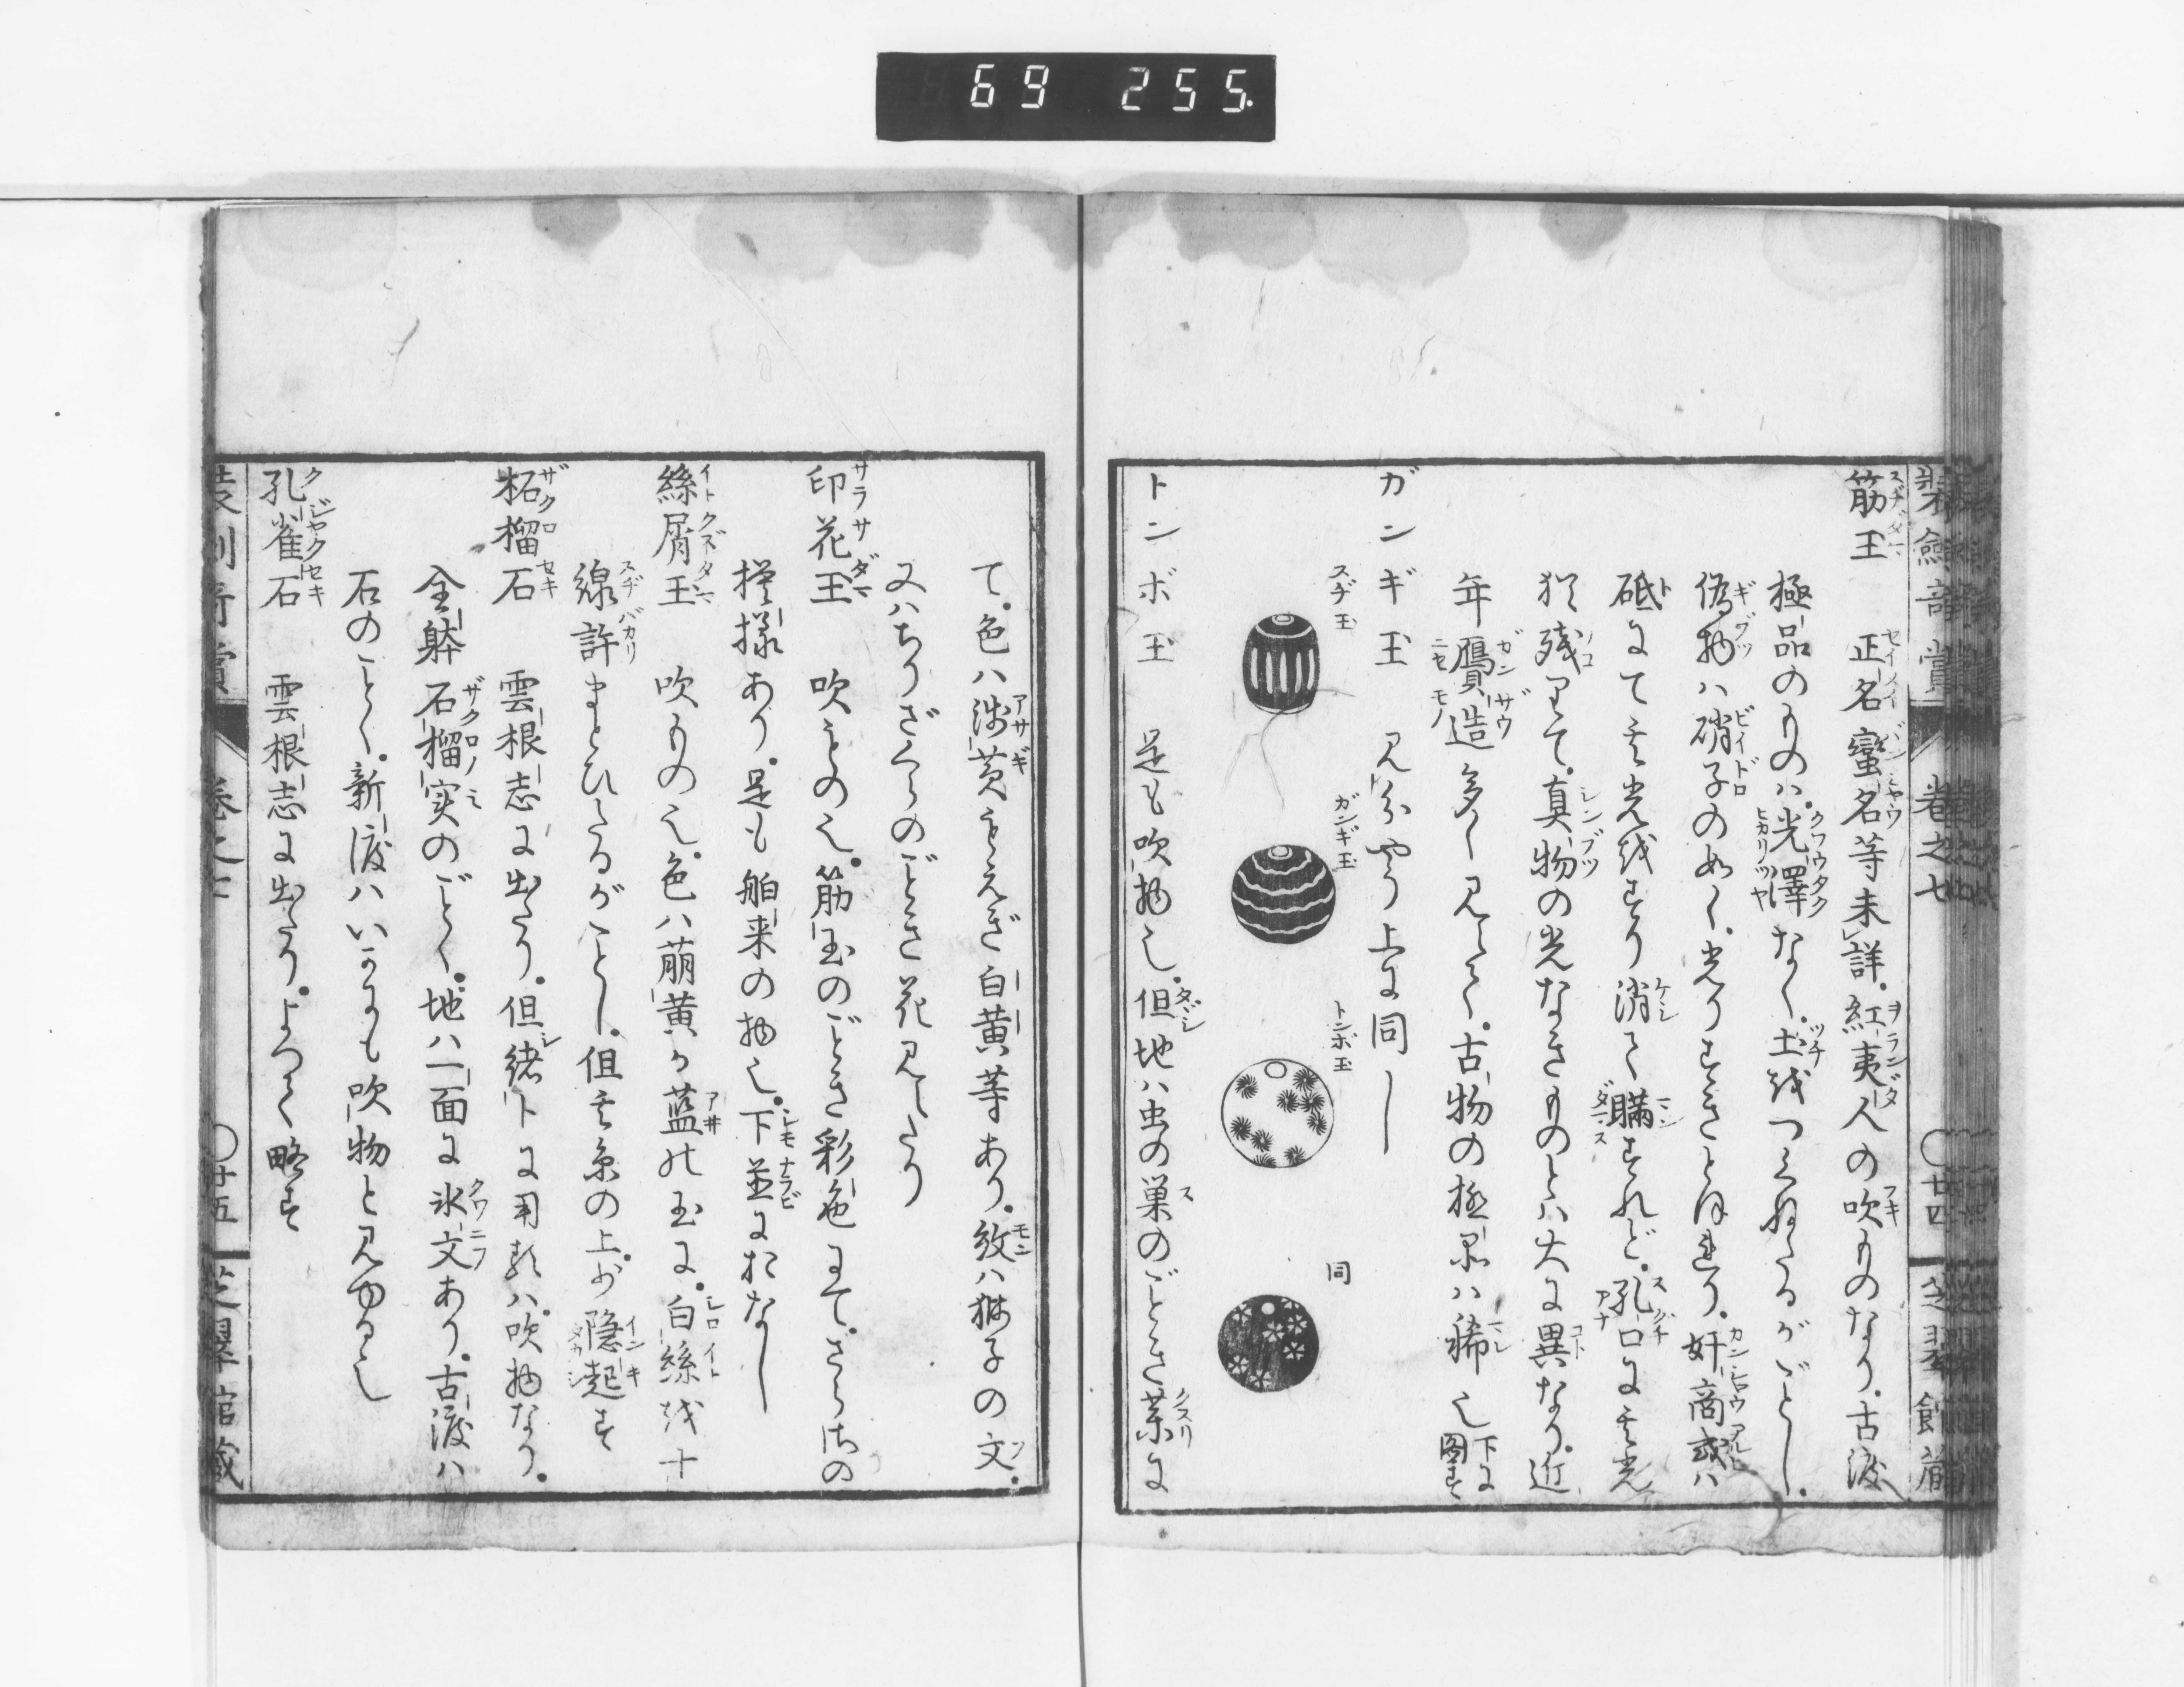 69 255.
巻之七
廿四
筋玉　正名蛮名等未詳。紅夷人の吹ものなり。古渡
極品のものハ。光澤なく。土を つくねたるがごとし。
偽物ハ硝子の如く。光りすきとほれり。奸商或ハ
砥にて其光をすり消て瞞すれど。孔口に其光
猶残りて。真物の光なきものとハ大に異なり。近
年贋造多く見へて。古物の極品ハ稀也 下に図す
ガンギ玉　見分やう上に同し
スヂ玉
ガンギ玉
トンボ玉
同
トンボ玉　是も吹物也。但地ハ虫の巣のごとき薬に
て。色ハ浅黄もえぎ白黄等あり。紋ハ猫子の文。
又ハちりざくらのごとき花見へたり
印花玉　吹もの也。筋玉のごとき彩色にて。さらさの
模様あり。是も舶来の物也。下並におなし
絲屑玉　吹もの也。色ハ萠黄か藍の玉に。白絲を十
線許まとひたるがごとし。但其糸の上少隠起す
柘榴石　雲根志に出たり。但緒卜に用るハ。吹物なり。
全躰石榴実のごとく。地ハ一面に氷文あり。古渡ハ
石のごとく。新渡ハいかにも吹物と見ゆる也
孔雀石　雲根志に出たり。よつて略す
巻之七
廿五
芝翠館蔵